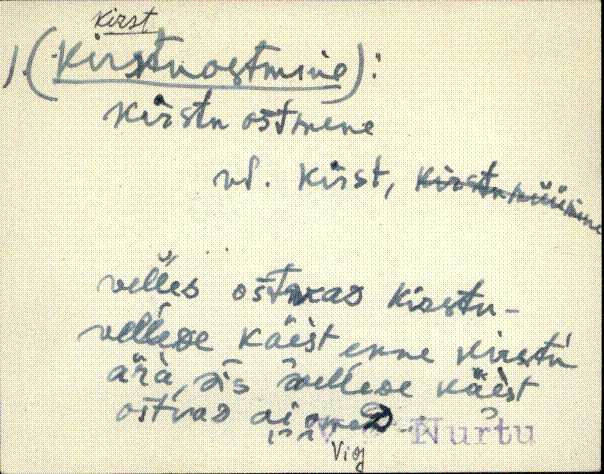 kirst
1. (Kirstuostmine):
kirstu ostmene
vt. kirst, kirstu müümine
velles ostvas kirstu-
vellese käest enne kirstu
ärä, siis vellese käest
ostvas
Nurtu
Vig